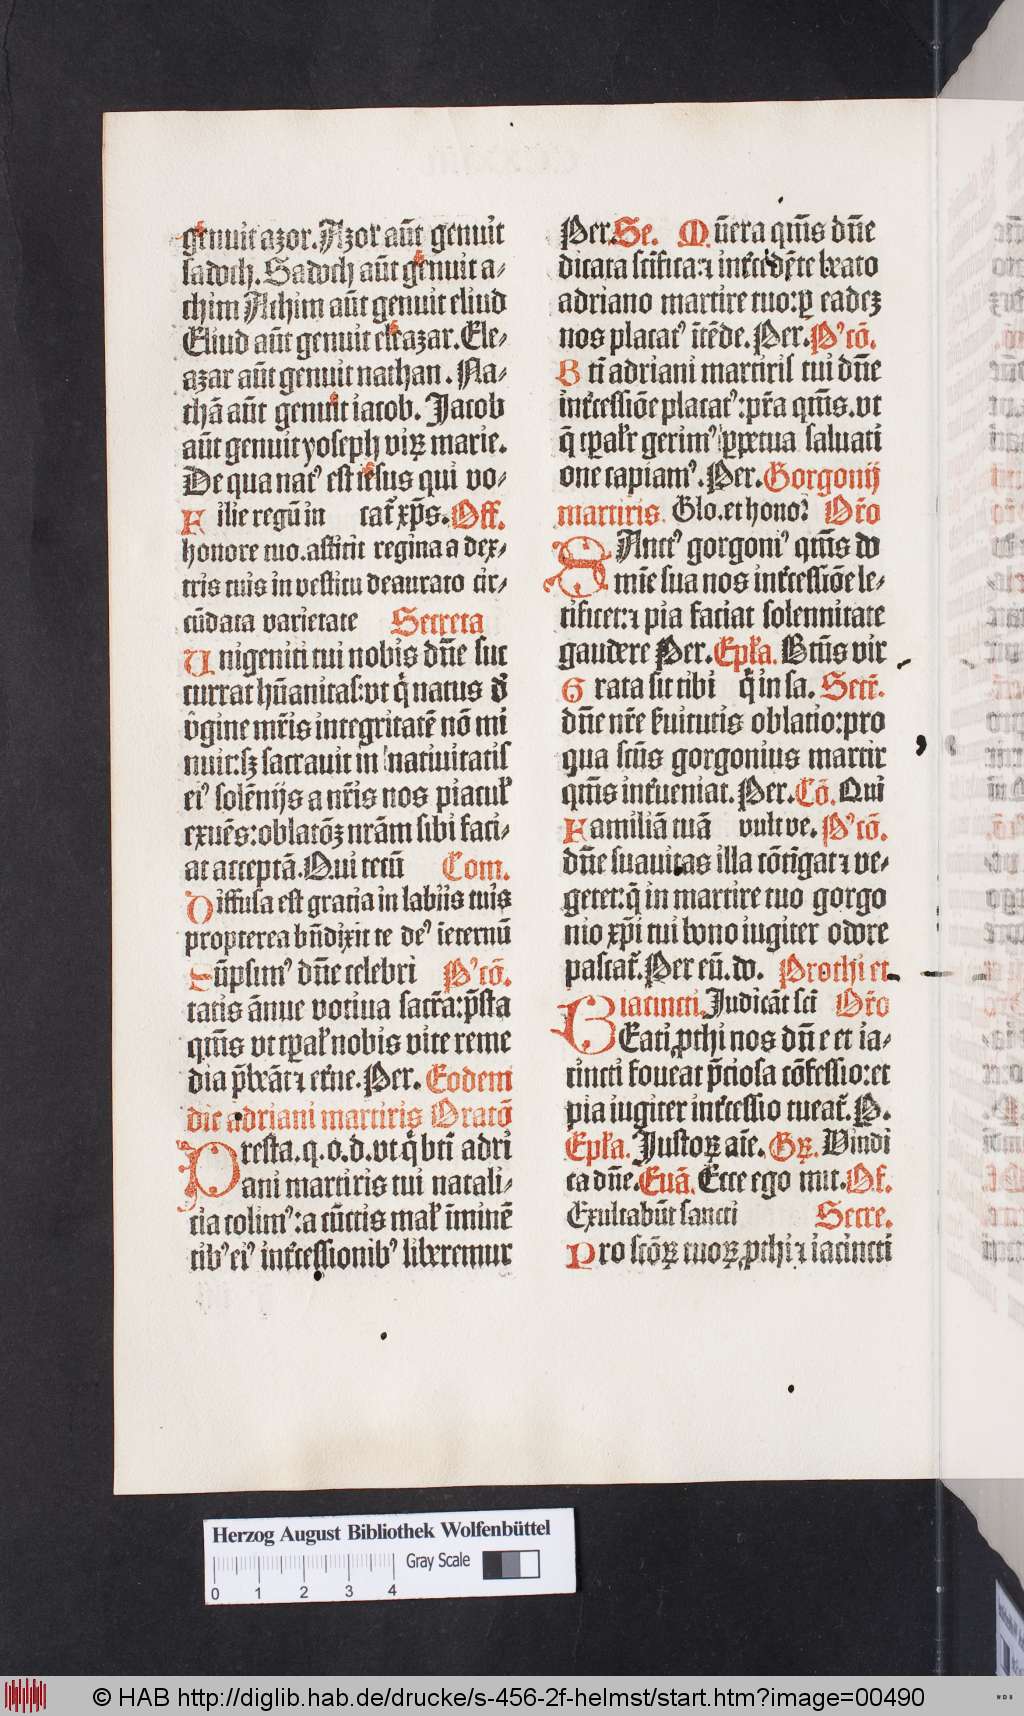 genuit azor. Azor aūt genuit
sadoch. Sadoch aūt genuit a-
chim Achim aūt genuit eliud
Eliud aūt genuit eleazar. Ele-
azar aūt genuit nathan. Na-
thā aūt genuit iacob. Jacob
aūt genuit yoseph uiꝝ marie.
De qua natꝰ est iesus qui vo-
catᷣ xp̄s. Off.
Filie regū in
honore tuo. astitit regina a dex-
tris tuis in vestitu deaurato cir-
cūdata varietate Secreta
Unigeniti tui nobis dn̄e suc
currat hūanitas: vt q̇ natus
v̓gine mr̄is integritatē nō mi
nuit: sꝫ sacrauit in natiuitatis
eiꝰ solēnijs a nr̄is nos piaculꝭ
exuēs: oblatōꝫ nrām sibi faci-
at acceptā. Qui tecū Com.
Diffusa est gratia in labiis tuis
propterea bn̄dixit te deꝰ ī eternū
Sūpsimꝰ dn̄e celebri Pꝰcō.
tatis ānue votiua sacr̄a: p̄sta
qm̄s vt tꝑalꝭ nobis vite reme
dia p̄beāt ⁊ et̓ne. Per. Eodem
die adriani martiris Oratō
Presta. q. o. d. vt q̇ bti̅ adri
ani martiris tui natali-
cia colimꝰ: a cūctis malꝭ īminē
tibꝰ eiꝰ int̓cessionibꝰ liberemur
Per. Se. Mūera qm̄s dn̄e
dicata sc̄ifica: ⁊ int̓cedēte beato
adriano martire tuo: ꝑ eadeꝫ
nos placatꝰ ītēde. Per. Pꝰcō.
Bti̅ adriani martiris tui dn̄e
int̓cessiōe placatꝰ: pr̄a qm̄s. vt
q̄ tꝑalꝭr gerimꝰ ꝑpetua saluati
one capiamꝰ. Per. Gorgonij
martiris. Glo. et hono? Or̄o
Sanctꝰ gorgoniꝰ qm̄s do
mīe sua nos int̓cessiōe le-
tificet: ⁊ pia faciat solennitate
gaudere Per. Epl̓a. Btūs vir
q̇ in sa. Secr̄.
Grata sit tibi
dn̄e nr̄e ẜuitutis oblatio: pro
qua sc̄ūs gorgonius martir
qm̄s int̓ueniat. Per. Cō. Qui
vult ve. Pꝰcō.
Familiā tuā
dn̄e suauitas illa cōtīgat ⁊ ve-
getet: q̄ in martire tuo gorgo
nio xp̄i tui bono iugiter odore
pascatᷣ. Per eū. do. Prothi et
Iacincti. Judicāt sc̄i Or̄o
Beati ꝓthi nos dn̄e et ia-
cincti foueat p̄ciosa cōfessio: et
pia iugiter int̓cessio tueatᷣ. P.
Epl̓a. Justoꝝ aīe. Gꝝ. Vindi
ca dn̄e. Euā. Ecce ego mit. Of.
Exultabūt sancti Secre.
Pro sc̄ōꝝ tuoꝝ ꝓthi ⁊ iacincti
Herzog August Bibliothek Wolfenbüttel
Gray Scale
0 1 2 3 4
© HAB http://diglib.hab.de/drucke/s-456-2f-helmst/start.htm?image=00490